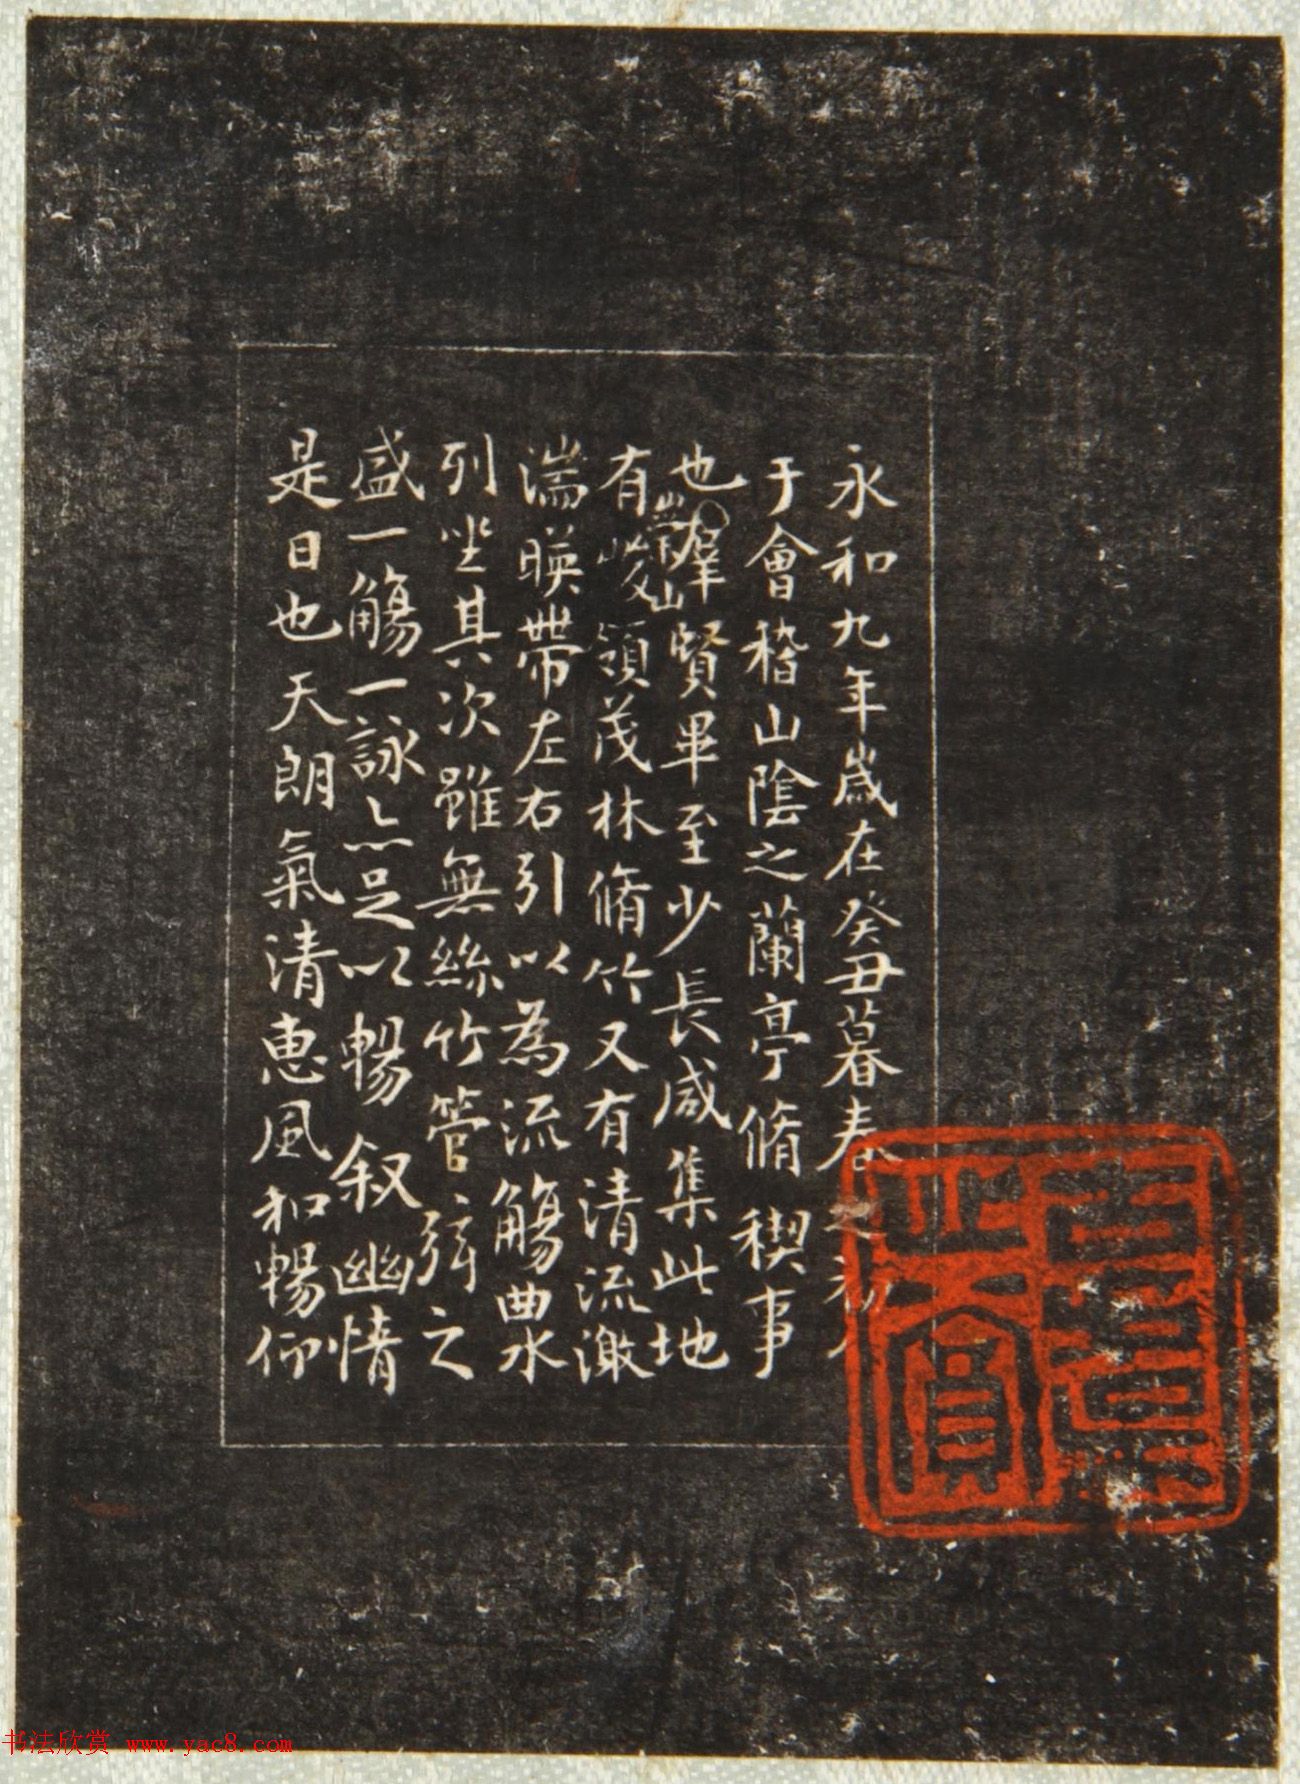 永和九年歲在癸丑暮春之初
于會稽山陰之蘭亭脩稧事
也羣賢畢至少長咸集此地
有崇山峻領茂林脩竹又有清流激
湍暎帶左右引以為流觴曲水
列坐其次雖無絲竹管弦之
盛一觴一詠亦足以暢叙幽情
是日也天朗氣清惠風和暢仰
书法欣赏 www.yac8.com